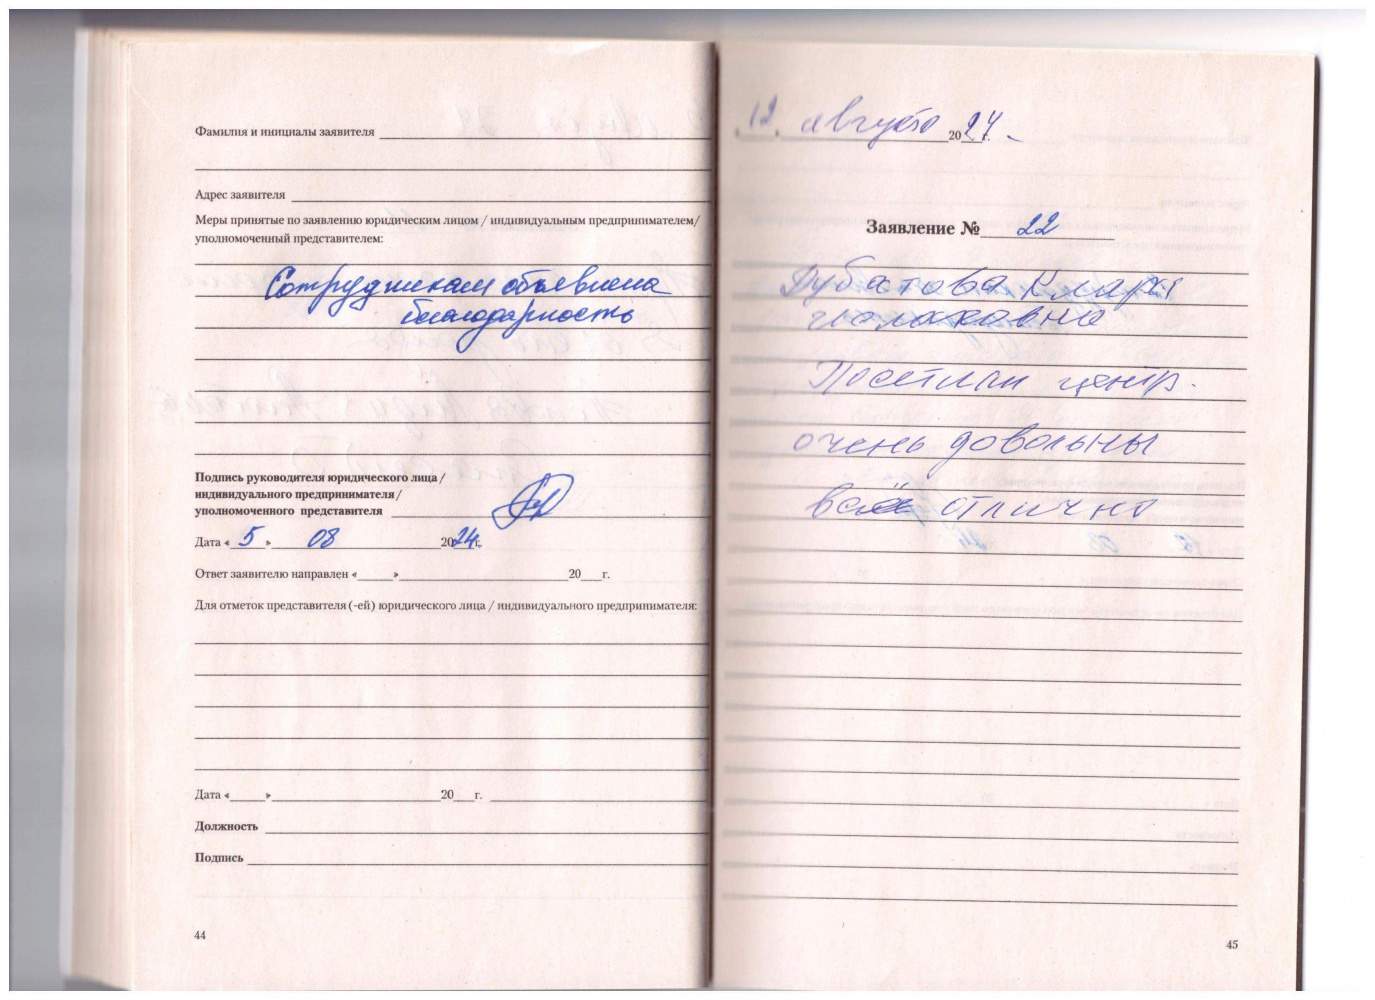 Фамилия и инициалы заявителя
Адрес заявителя
Меры принятые по заявлению юридическим лицом / индивидуальным предпринимателем/
уполномоченный представителем:
Сотрудникам объявлена
благодарность
Подпись руководителя юридического лица /
индивидуального предпринимателя /
уполномоченного представителя
Дата « 5 » 08 2024г.
Ответ заявителю направлен « » 20 г.
Для отметок представителя (-ей) юридического лица / индивидуального предпринимателя:
Дата « » 20 г.
Должность
Подпись
44
12 августа 2024г.
Заявление № 22
Посетили центр.
очень довольны
всё отлично
45